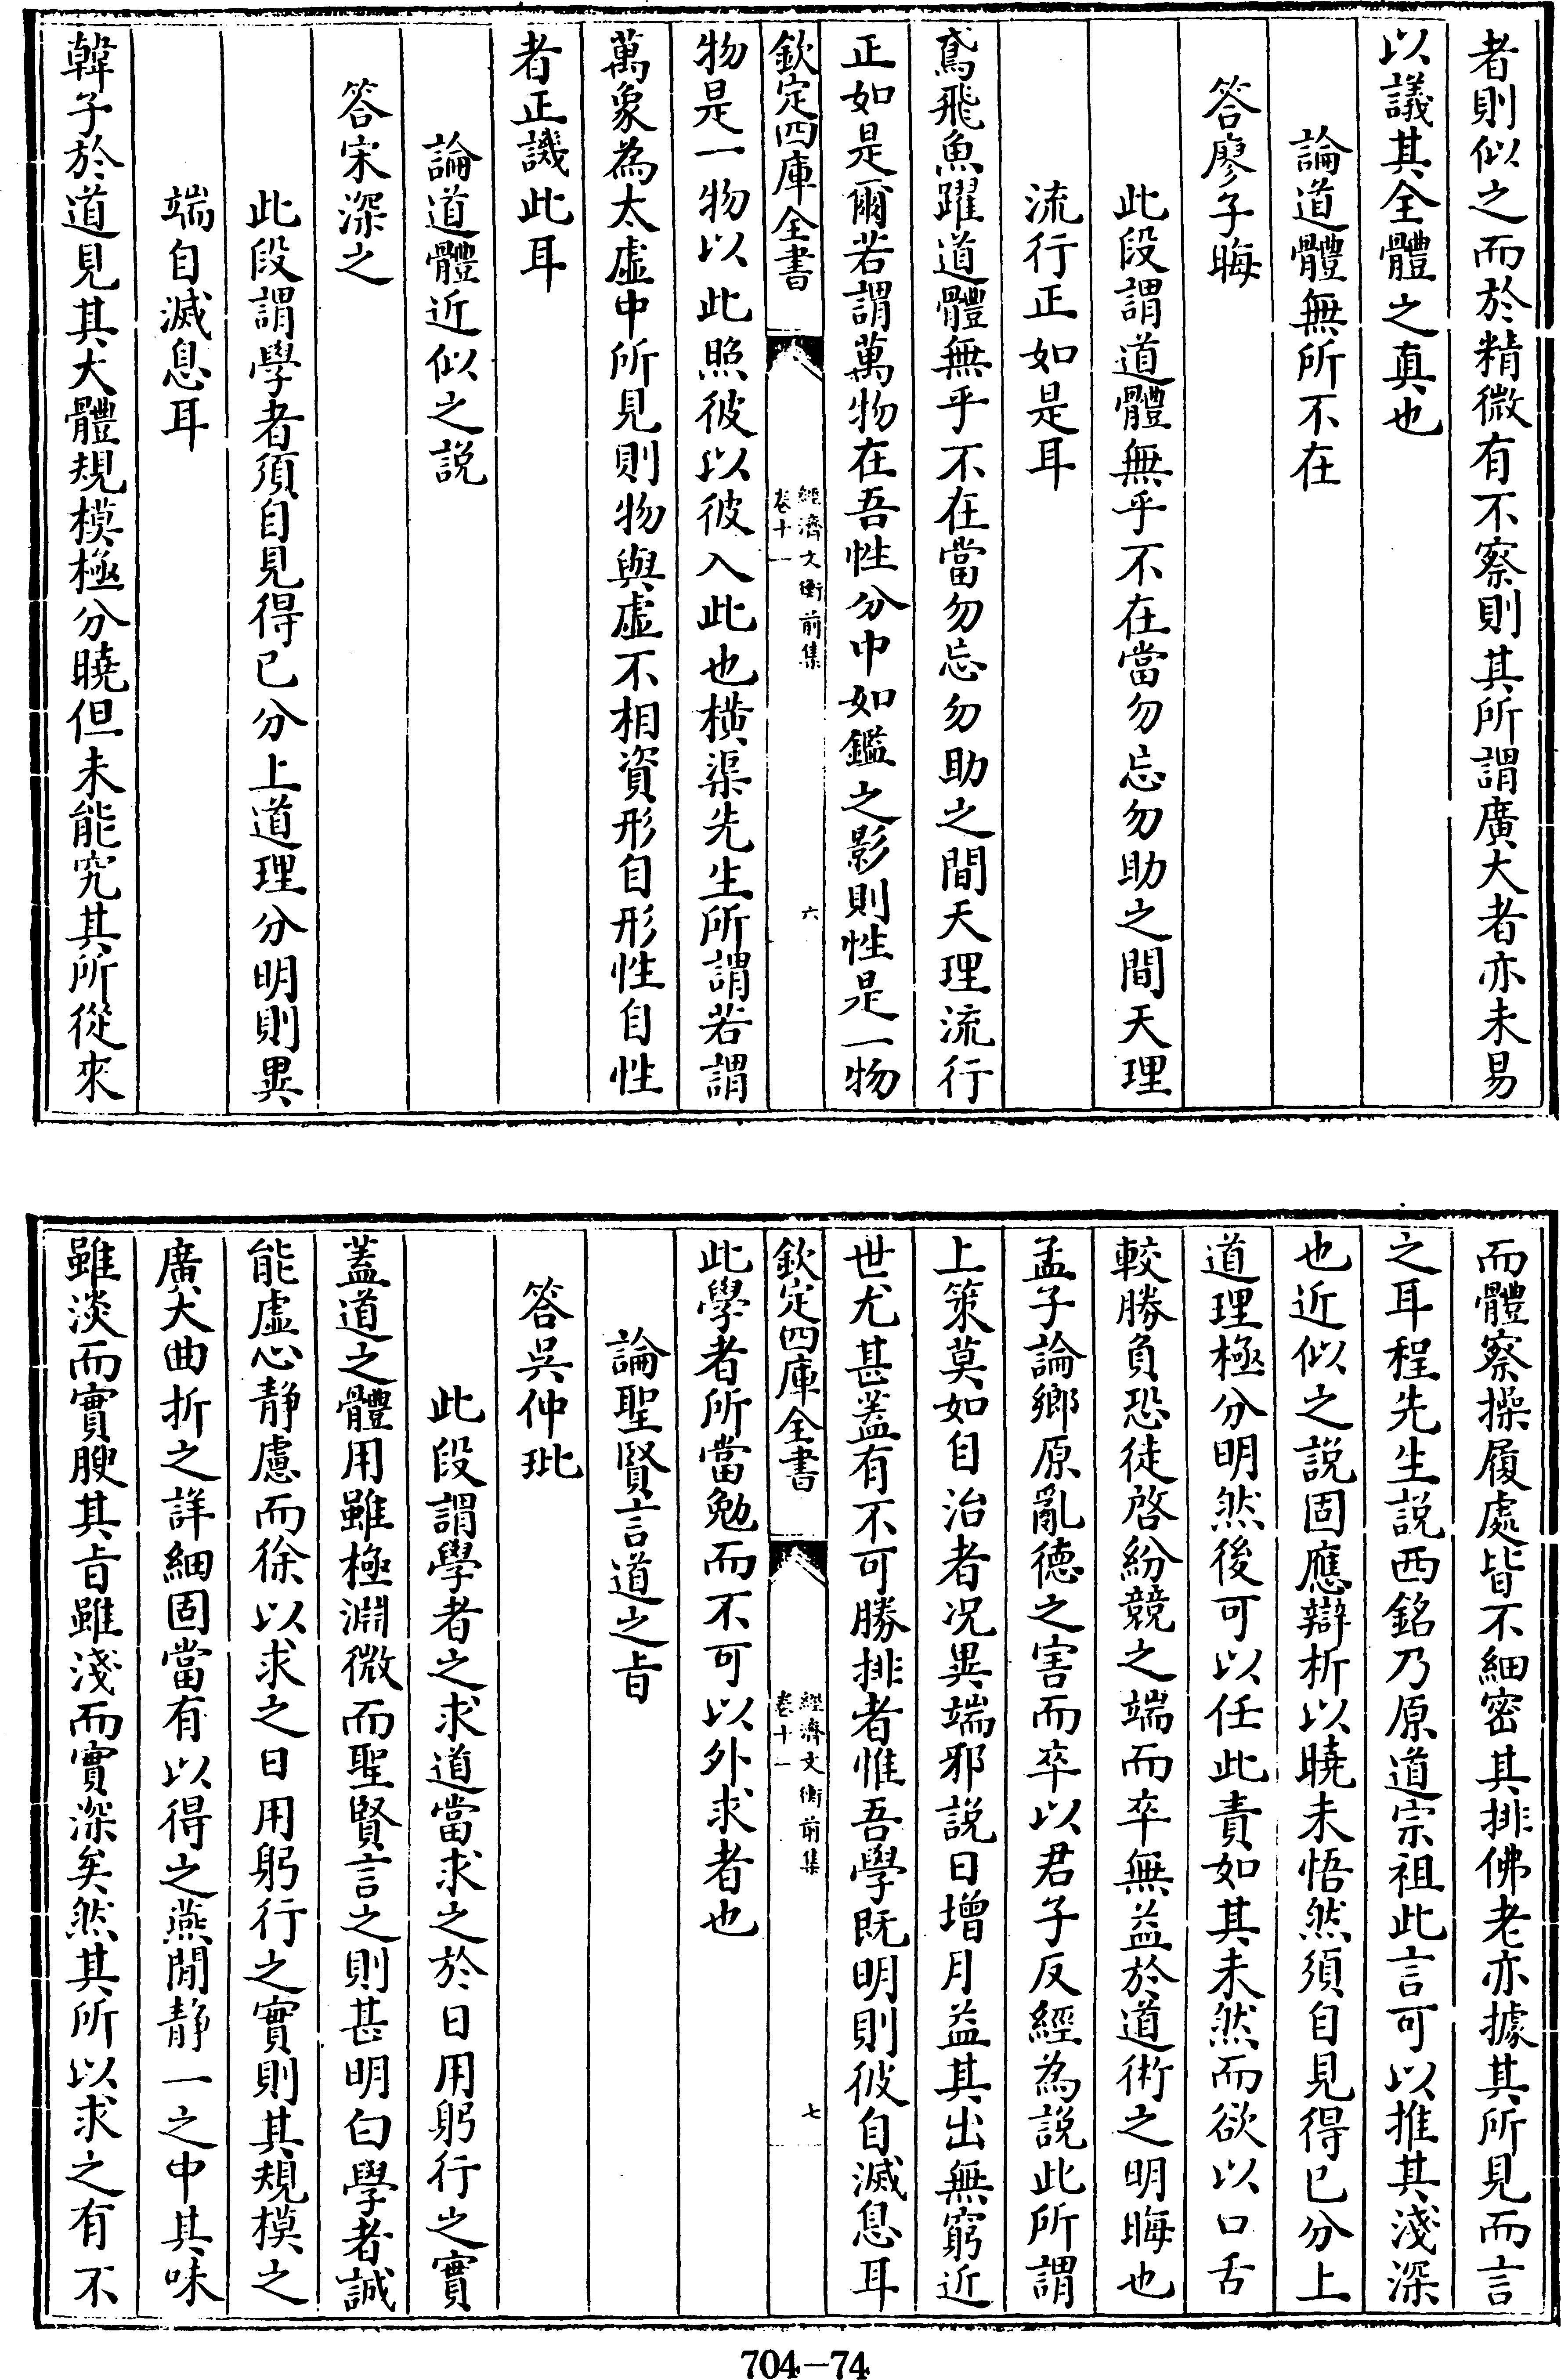 者則似之而於精微有不察則其所謂廣大者亦未易
以議其全體之真也
論道體無所不在
答廖子晦
此段謂道體無乎不在當勿忘勿助之間天理
流行正如是耳
鳶飛魚躍道體無乎不在當勿忘勿助之間天理流行
正如是爾若謂萬物在吾性分中如鑑之影則性是一物
欽定四庫全書
經濟文衡前集
卷十一
六
物是一物以此照彼以彼入此也橫渠先生所謂若謂
萬象為太虛中所見則物與虛不相資形自形性自性
者正譏此耳
論道體近似之説
答宋深之
此段謂學者須自見得已分上道理分明則異
端自滅息耳
韓子於道見其大體規模極分曉但未能究其所從來
而體察操履處皆不細密其排佛老亦據其所見而言
之耳程先生説西銘乃原道宗祖此言可以推其淺深
也近似之説固應辯析以曉未悟然須自見得已分上
道理極分明然後可以任此責如其未然而欲以口舌
較勝負恐徒啓紛競之端而卒無益於道術之明晦也
孟子論鄉原亂德之害而卒以君子反經為説此所謂
上策莫如自治者况異端邪説日增月益其出無窮近
世尤甚蓋有不可勝排者惟吾學既明則彼自滅息耳
欽定四庫全書
經濟文衡前集
卷十一
七
此學者所當勉而不可以外求者也
論聖賢言道之㫖
答吳仲玭
此段謂學者之求道當求之於日用躬行之實
蓋道之體用雖極淵微而聖賢言之則甚明白學者誠
能虛心靜慮而徐以求之日用躬行之實則其規模之
廣大曲折之詳細固當有以得之燕閒靜一之中其味
雖淡而實腴其㫖雖淺而實深矣然其所以求之有不
704-74